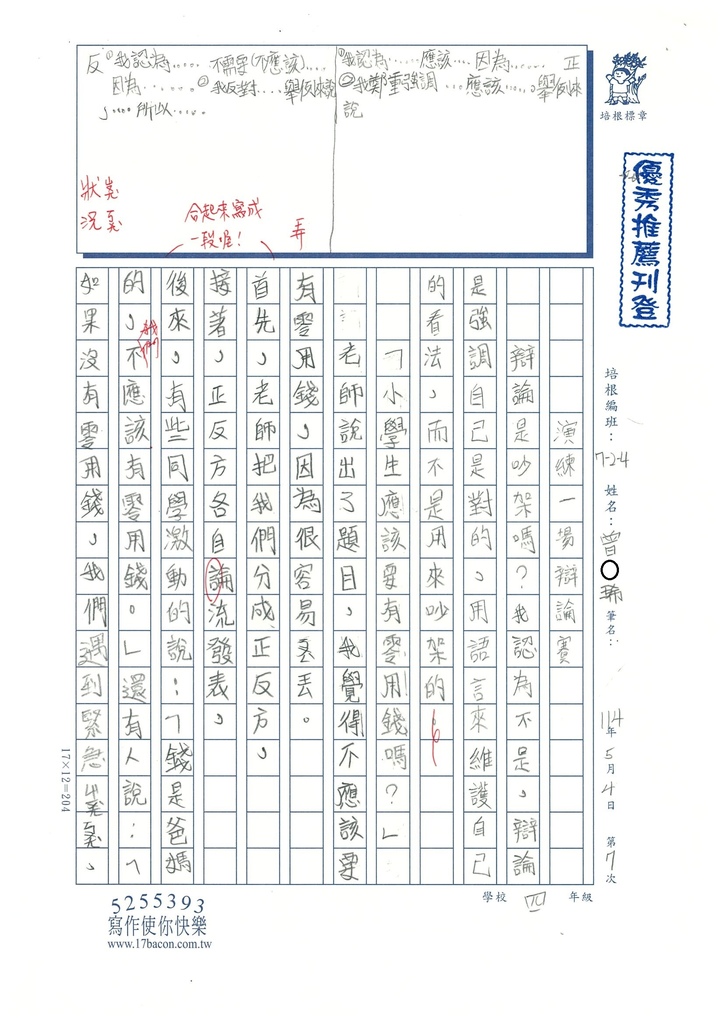 正 ①我認為……應該…因為……
②我鄭重強調…應該……舉例來
說
反 ①我認為……不需要(不應該)……
因為…… ②我反對……舉例來說
，……所以……
狀
況
合起來寫成
一段喔！
弄
培根標章
優秀推薦刊登
培根編班：7-2-4 姓名：曾〇 筆名：
114年5月4日 第7次
演練一場辯論賽
辯論是吵架嗎？我認為不是，辯論
是強調自己是對的，用語言來維護自己
的看法，而不是用來吵架的
「小學生應該要有零用錢嗎？」
老師說出了題目，我覺得不應該要
有零用錢，因為很容易ㄋㄨㄥˋ丟。
首先，老師把我們分成正反方，
接著，正反方各自論流發表，
後來，有些同學激動的說：「錢是爸媽
的，不應該有零用錢。」還有人說：「
我們
如果沒有零用錢，我們遇到緊急ㄓㄨㄤˋㄎㄨㄤˋ，
17×12=204
學校 四 年級
5255393
寫作使你快樂
www.17bacon.com.tw